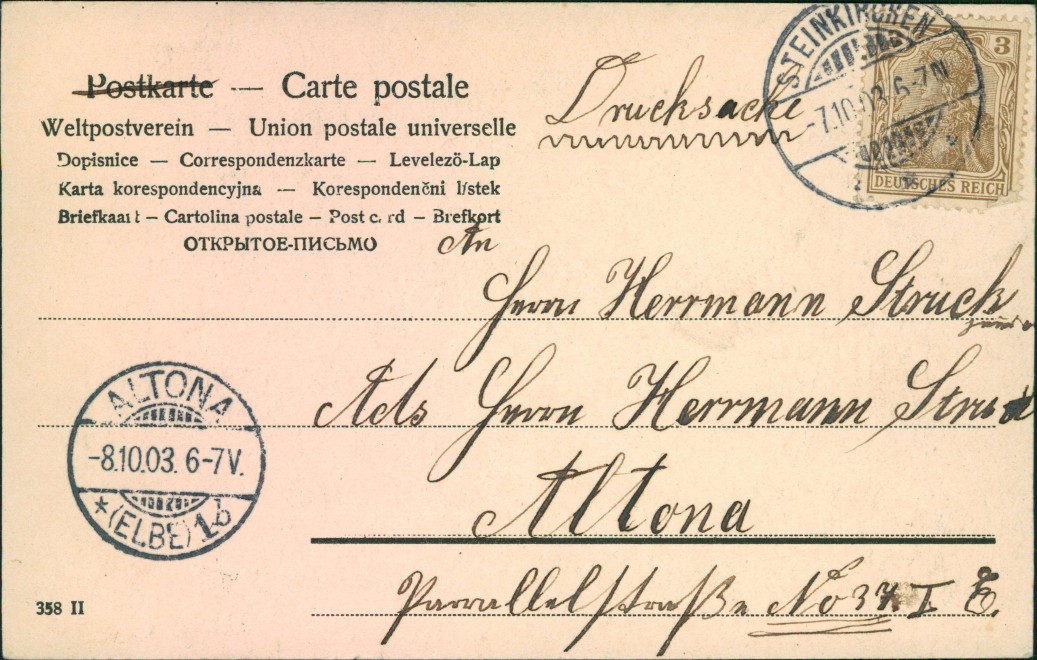 Postkarte — Carte postale
Weltpostverein — Union postale universelle
Dopisnice — Correspondenzkarte — Levelező-Lap
Karta korespondencyjna — Korespondenčni listek
Briefkaart – Cartolina postale – Post card – Brefkort
ОТКРЫТОЕ-ПИСЬМО
Drucksache
STEINKIRCHEN
-7.10.03 6-7N
3
DEUTSCHES REICH
An
Herrn Herrmann Struck
Ads Herrn Herrmann Struck
Altona
Parrallelstraße No 37 I E.
ALTONA
-8.10.03. 6-7V.
* (ELBE) 1b
358 II